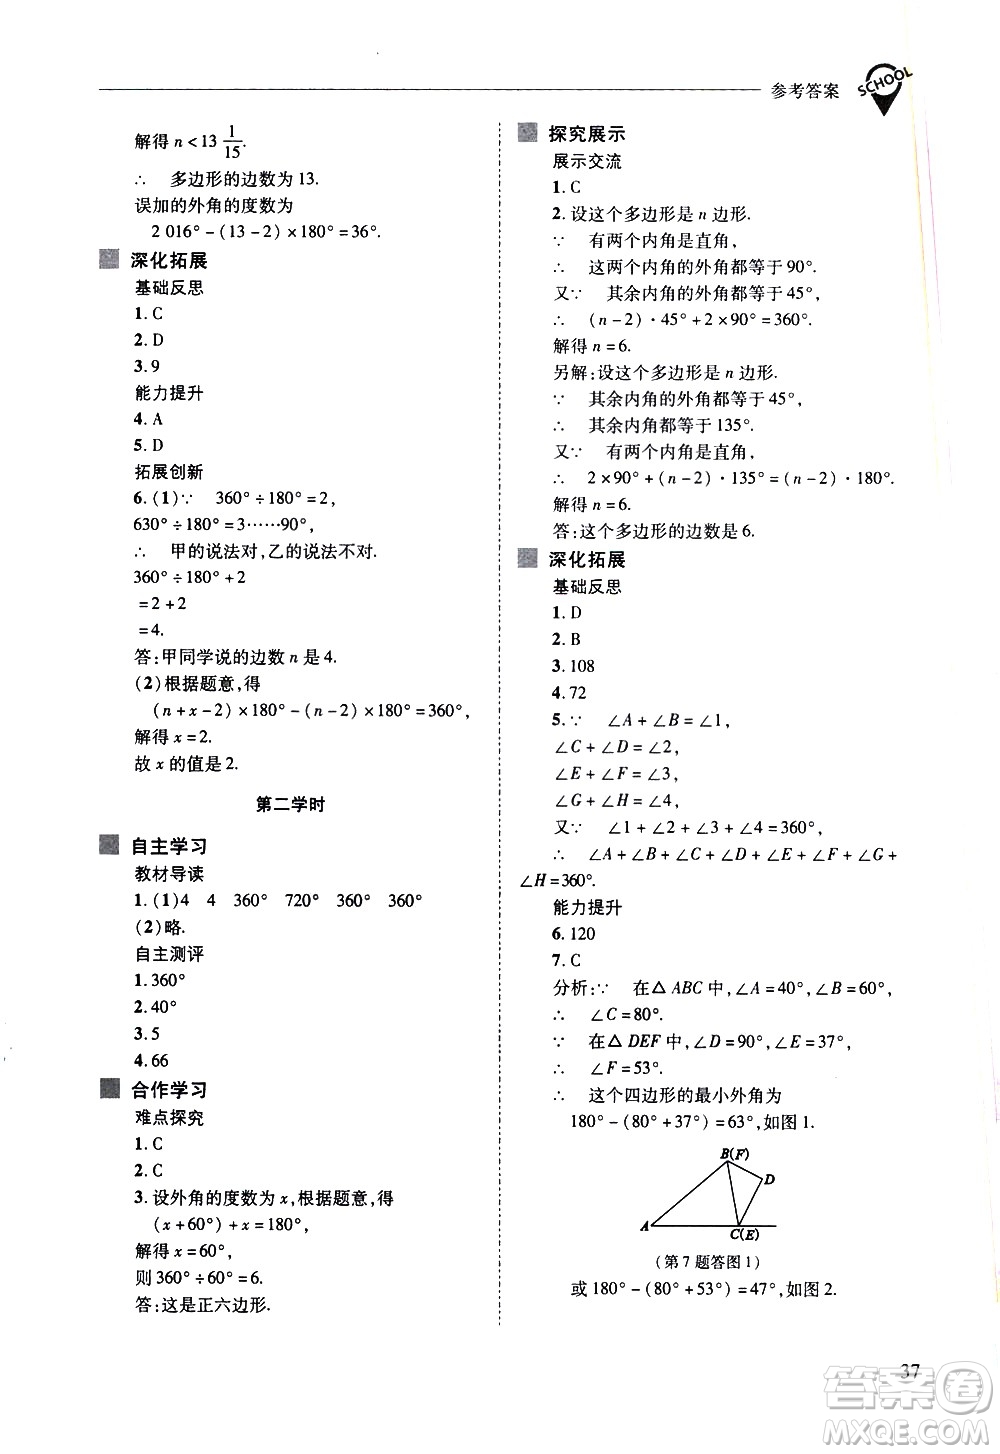 参考答案
SCHOOL
解得 n<13 1/15.
∴ 多边形的边数为 13.
误加的外角的度数为
2 016°-(13-2)×180°=36°.
深化拓展
基础反思
1. C
2. D
3. 9
能力提升
4. A
5. D
拓展创新
6. (1)∵ 360°÷180°=2,
630°÷180°=3……90°,
∴ 甲的说法对,乙的说法不对.
360°÷180°+2
=2+2
=4.
答:甲同学说的边数 n 是 4.
(2)根据题意,得
(n+x-2)×180°-(n-2)×180°=360°,
解得 x=2.
故 x 的值是 2.
第二学时
自主学习
教材导读
1. (1)4 4 360° 720° 360° 360°
(2)略.
自主测评
1. 360°
2. 40°
3. 5
4. 66
合作学习
难点探究
1. C
2. C
3. 设外角的度数为 x,根据题意,得
(x+60°)+x=180°,
解得 x=60°.
则 360°÷60°=6.
答:这是正六边形.
探究展示
展示交流
1. C
2. 设这个多边形是 n 边形.
∵ 有两个内角是直角,
∴ 这两个内角的外角都等于 90°.
又∵ 其余内角的外角都等于 45°,
∴ (n-2)·45°+2×90°=360°.
解得 n=6.
另解:设这个多边形是 n 边形.
∵ 其余内角的外角都等于 45°,
∴ 其余内角都等于 135°.
又∵ 有两个内角是直角,
∴ 2×90°+(n-2)·135°=(n-2)·180°.
解得 n=6.
答:这个多边形的边数是 6.
深化拓展
基础反思
1. D
2. B
3. 108
4. 72
5. ∵ ∠A+∠B=∠1,
∠C+∠D=∠2,
∠E+∠F=∠3,
∠G+∠H=∠4,
又∵ ∠1+∠2+∠3+∠4=360°,
∴ ∠A+∠B+∠C+∠D+∠E+∠F+∠G+
∠H=360°.
能力提升
6. 120
7. C
分析:∵ 在△ABC 中,∠A=40°,∠B=60°,
∴ ∠C=80°.
∵ 在△DEF 中,∠D=90°,∠E=37°,
∴ ∠F=53°.
∴ 这个四边形的最小外角为
180°-(80°+37°)=63°,如图 1.
B(F)
D
A
C(E)
(第 7 题答图 1)
或 180°-(80°+53°)=47°,如图 2.
37
答案圈
MXQE.COM